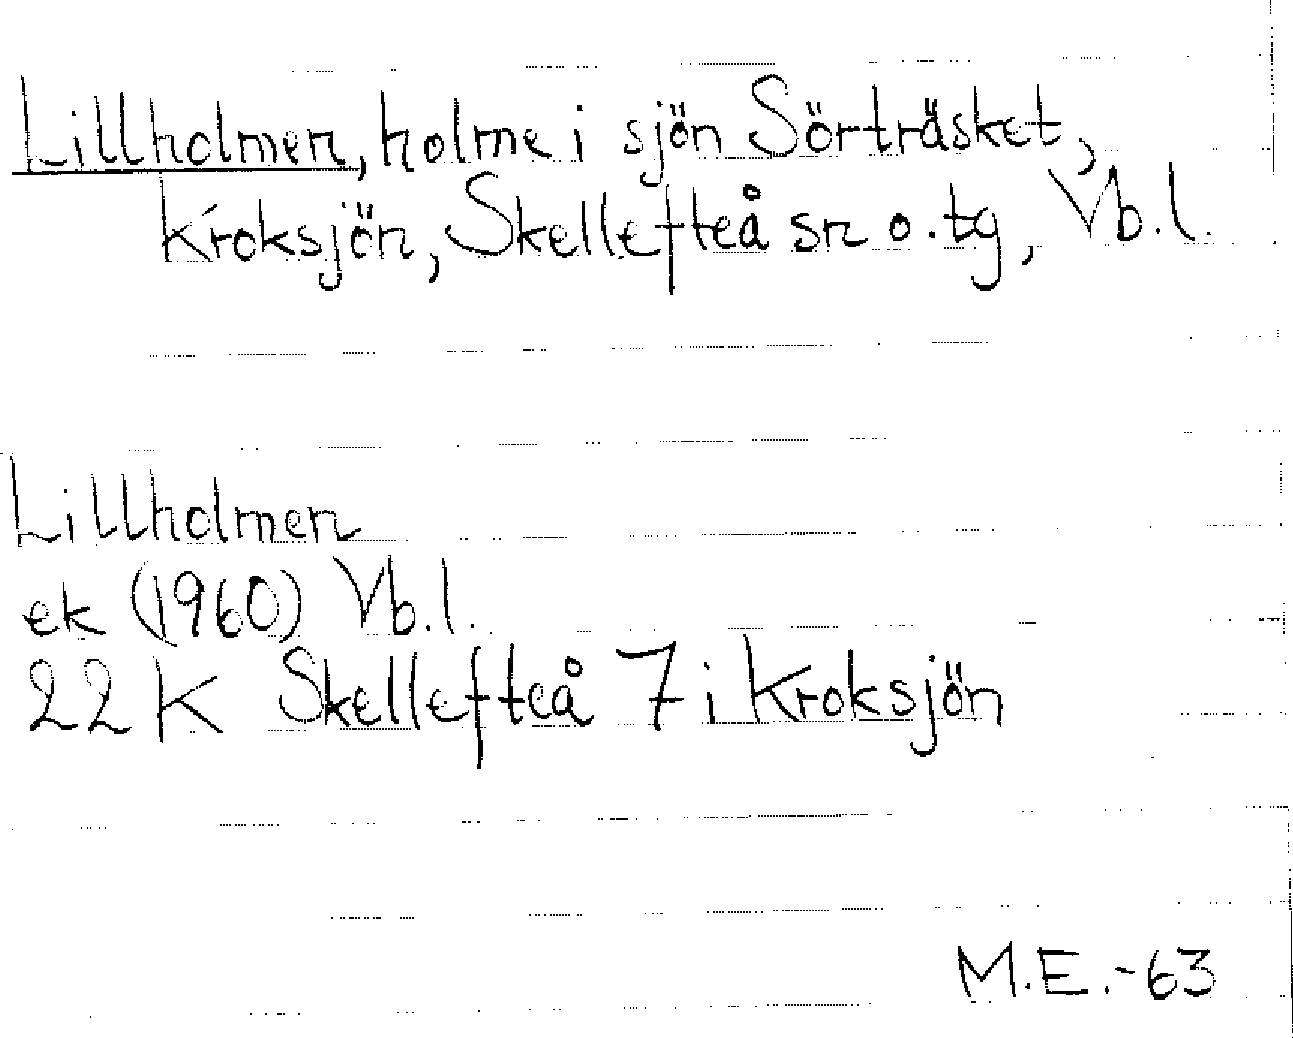 Lillholmen, holme i sjön Sörträsket,
Kroksjön, Skellefteå sn o. tg, Vb.l.
Lillholmen
ek (1960) Vb.l.
22 K Skellefteå 7 i Kroksjön
M.E.-63